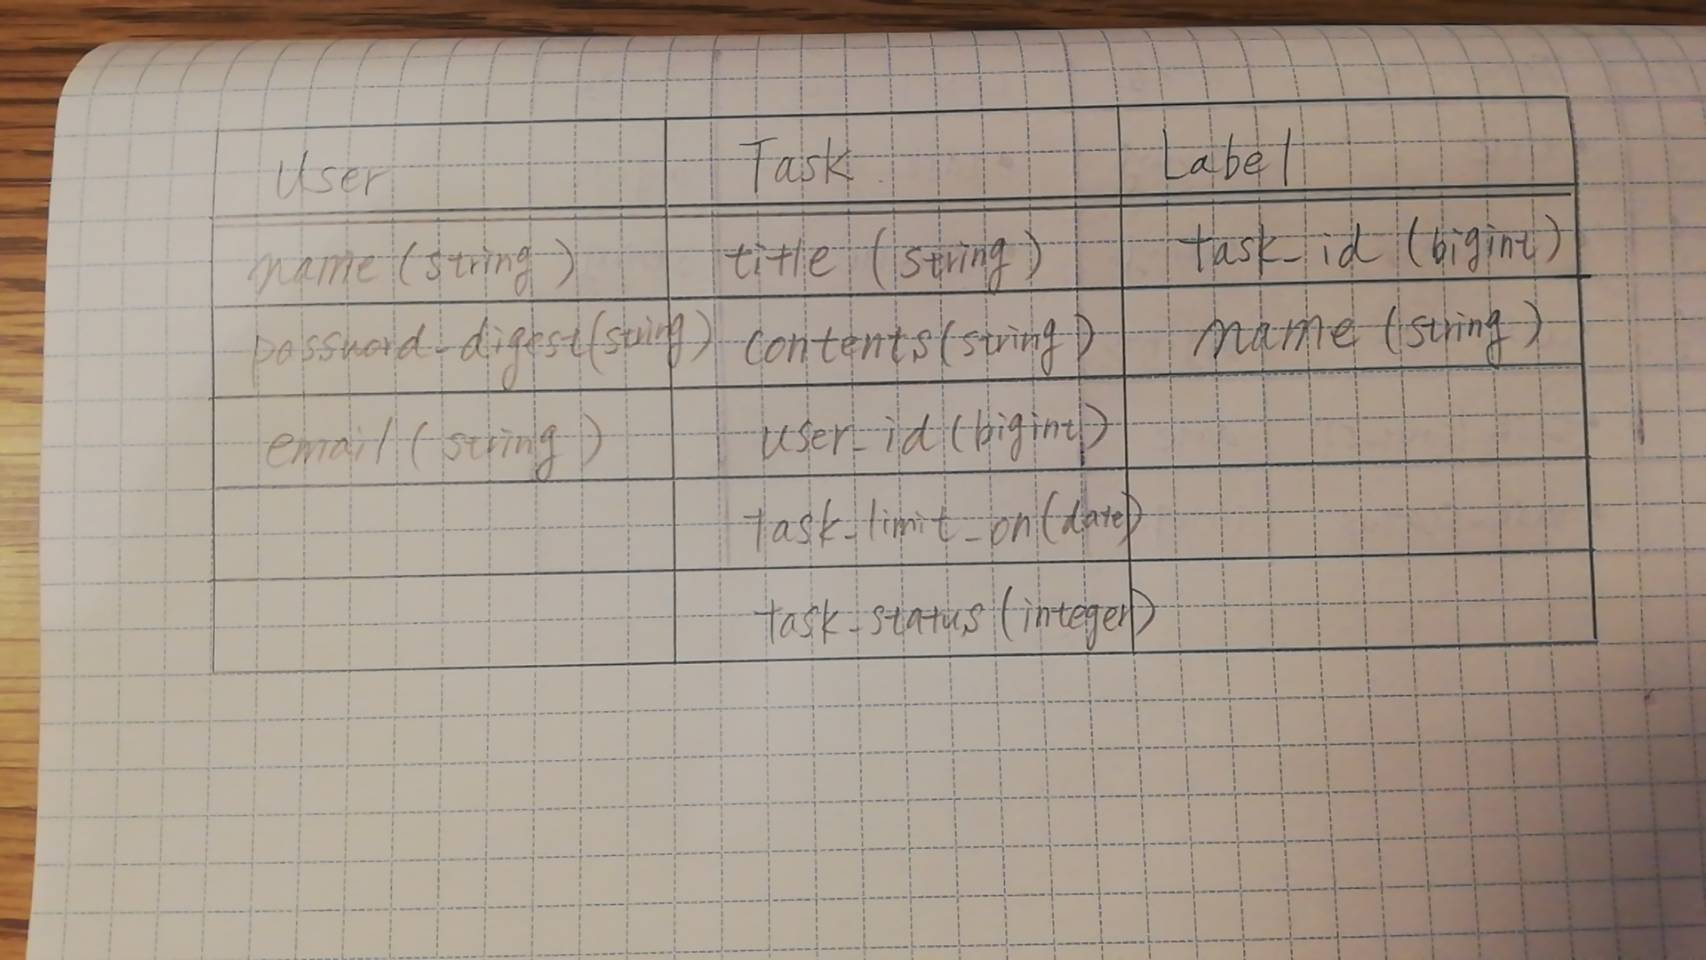 User Task Label
name (string) title (string) task_id (bigint)
password_digest(string) contents(string) name (string)
email (string) user_id (bigint)
task_limit_on(date)
task_status (integer)